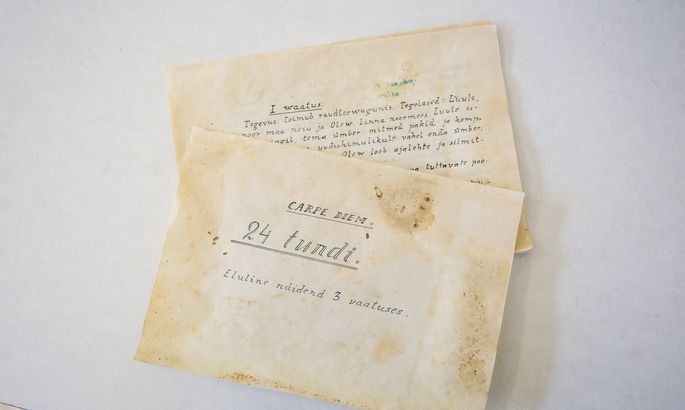 I waatus.
Tegevus toimub raudteewagunis. Tegelased: Luule,
noor maa neiu ja Olew, linna noormees. Luule is-
pingil, tema ümber mitmed pakid ja komp
uudishimulikult vahel enda ümber,
Olew loeb ajalehte ja silmit-
tuttavate poo-
CARPE DIEM.
24 tundi.
Eluline näidend 3 vaatuses.